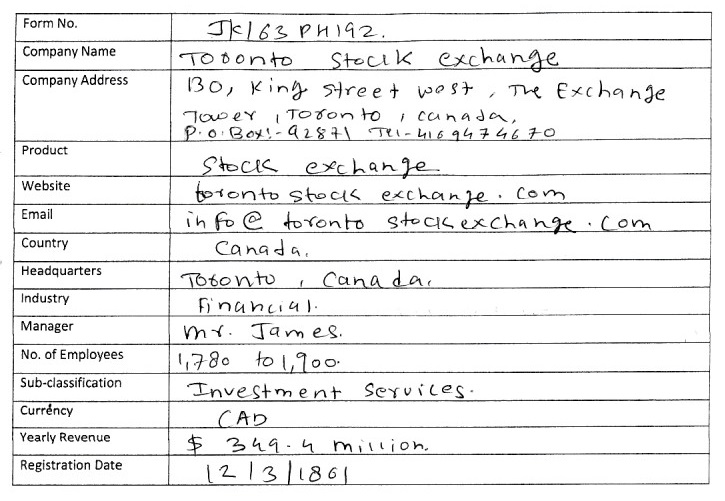 Form No. JK/63 PH192.
Company Name Toronto Stock exchange
Company Address 130, King street west, The Exchange
Tower, Toronto, Canada,
P.O.Box:- 92871 Tel-4169474670
Product Stock exchange
Website toronto stock exchange.com
Email info@torontostockexchange.com
Country Canada.
Headquarters Toronto, Canada.
Industry Financial.
Manager Mr. James.
No. of Employees 1,780 to 1,900.
Sub-classification Investment Services.
Currency CAD
Yearly Revenue $ 349.4 million.
Registration Date 12/3/1861